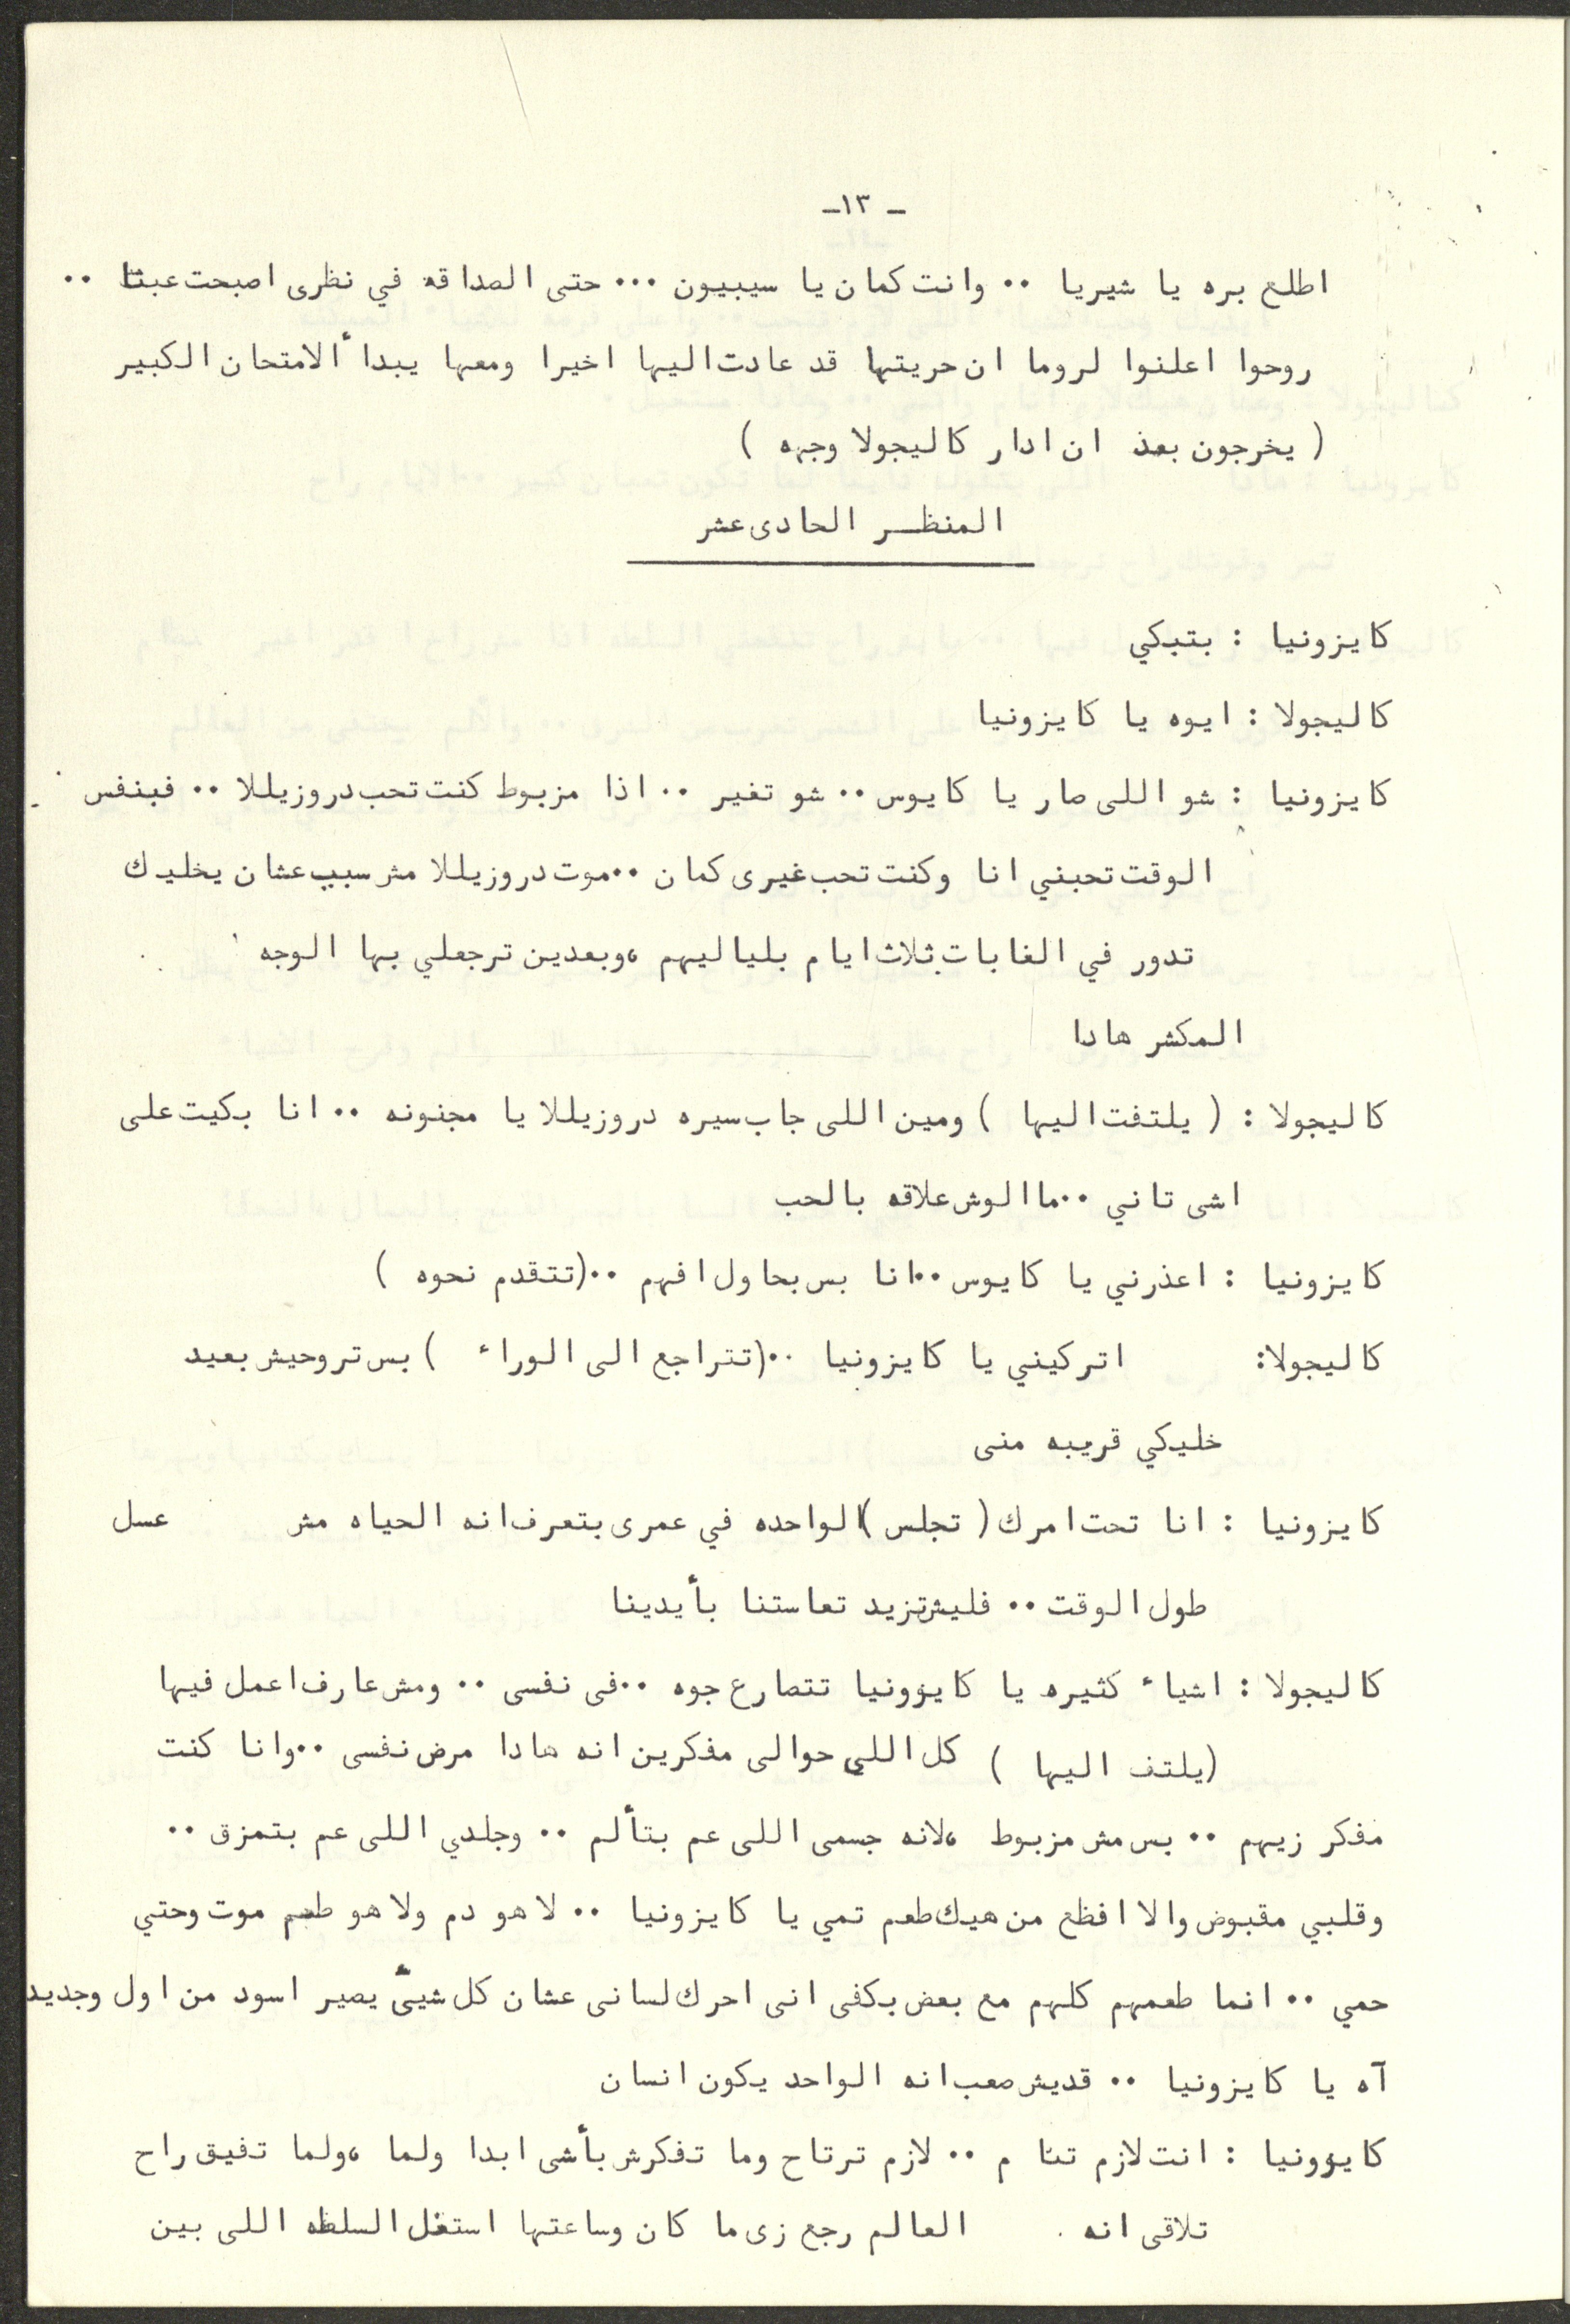 - ١٣-
اطلع بره يا شيريا ٠٠ وانت كمان يا سيبيون ٠٠٠ حتى الصداقه في نظرى اصبحت عبثا ٠٠
روحوا اعلنوا لروما ان حريتها قد عادت اليها اخيرا ومعها يبدأ الامتحان الكبير
( يخرجون بعد ان ادار كاليجولا وجهه )
المنظر الحادى عشر
كايزونيا : بتبكي
كاليجولا : ايوه يا كايزونيا
كايزونيا : شو اللى صار يا كايوس ٠٠ شو تغير ٠٠ اذا مزبوط كنت تحب دروزيللا ٠٠ فبنفس
الوقت تحبني انا وكنت تحب غيرى كمان ٠٠ موت دروزيللا مش سبب عشان يخليك
تدور في الغابات ثلاث ايام بلياليهم ، وبعدين ترجعلي بها الوجه
المكشر هادا
كاليجولا : ( يلتفت اليها ) ومين اللى جاب سيره دروزيللا يا مجنونه ٠٠ انا بكيت على
اشى تاني ٠٠ ما الوش علاقه بالحب
كايزونيا : اعذرني يا كايوس ٠٠ انا بس بحاول افهم ٠٠ (تتقدم نحوه )
كاليجولا: اتركيني يا كايزونيا ٠٠ (تتراجع الى الوراء ) بس تروحيش بعيد
خليكي قريبه منى
كايزونيا : انا تحت امرك ( تجلس ) الواحده في عمرى بتعرف انه الحياه مش عسل
طول الوقت ٠٠ فليش تزيد تعاستنا بأيدينا
كاليجولا : اشياء كثيره يا كايوونيا تتصارع جوه ٠٠ فى نفسى ٠٠ ومش عارف اعمل فيها
(يلتف اليها ) كل اللي حوالى مفكرين انه هادا مرض نفسى ٠٠ وانا كنت
مفكر زيهم ٠٠ بس مش مزبوط ، لانه جسمى اللى عم بتألم ٠٠ وجلدي اللى عم بتمزق ٠٠
وقلبي مقبوض والا افظع من هيك طعم تمي يا كايزونيا ٠٠ لا هو دم ولا هو طعم موت وحتي
حمي ٠٠ انما طعمهم كلهم مع بعض بكفى انى احرك لسانى عشان كل شيئ يصير اسود من اول وجديد
آه يا كايزونيا ٠٠ قديش صعب انه الواحد يكون انسان
كايوونيا : انت لازم تنا م ٠٠ لازم ترتاح وما تفكرش بأشى ابدا ولما ، ولما تفيق راح
تلاقى انه العالم رجع زى ما كان وساعتها استغل السلطه اللى بين